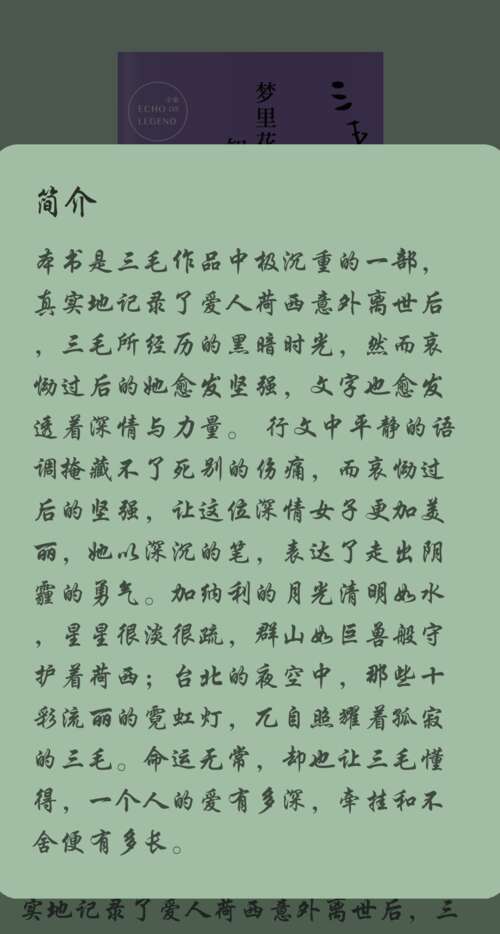 ECHO
LEGEND
三毛
梦里花
简介
本书是三毛作品中极沉重的一部，
真实地记录了爱人荷西意外离世后
，三毛所经历的黑暗时光，然而哀
恸过后的她愈发坚强，文字也愈发
透着深情与力量。 行文中平静的语
调掩藏不了死别的伤痛，而哀恸过
后的坚强，让这位深情女子更加美
丽，她以深沉的笔，表达了走出阴
霾的勇气。加纳利的月光清明如水
，星星很淡很疏，群山如巨兽般守
护着荷西；台北的夜空中，那些十
彩流丽的霓虹灯，兀自照耀着孤寂
的三毛。命运无常，却也让三毛懂
得，一个人的爱有多深，牵挂和不
舍便有多长。
实地记录了爱人荷西意外离世后，三